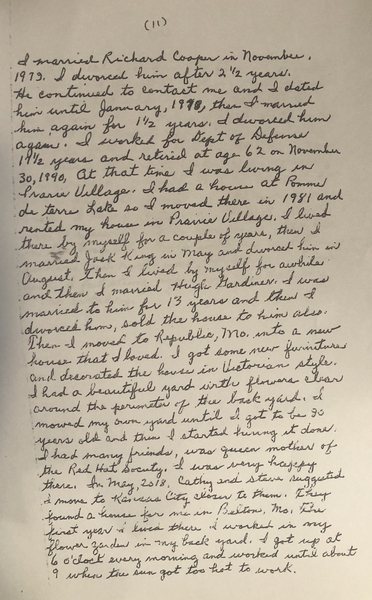 (11)
I married Richard Cooper in November,
1973. I divorced him after 2 1/2 years.
He continued to contact me and I dated
him until January, then I married
him again for 1 1/2 years. I divorced him
again. I worked for Dept of Defense
19 1/2 years and retired at age 62 on November
30, 1990. At that time I was living in
Prarie Village. I had a house at Pomme
de terre Lake so I moved there in 1981 and
rented my house in Prarie Village. I lived
there by myself for a couple of years, then I
married Jack King in May and divorced him in
August. Then I lived by myself for awhile
and then I married Hugh Gardiner. I was
married to him for 13 years and then I
divorced him, sold the house to him also.
Then I moved to Republic, Mo. into a new
house that I loved. I got some new furniture
and decorated the house in Victorian style.
I had a beautiful yard with flowers clear
around the perimeter of the back yard. I
mowed my own yard until I got to be 90
years old and then I started hiring it done.
I had many friends, was queen mother of
the Red Hat Society. I was very happy
there. In May, 2018, Cathy and Steve suggested
I move to Kansas City closer to them. They
found a house for me in Belton, Mo. The
first year I lived there I worked in my
flower garden in my back yard. I got up at
6 o'clock every morning and worked until about
9 when the sun got too hot to work.